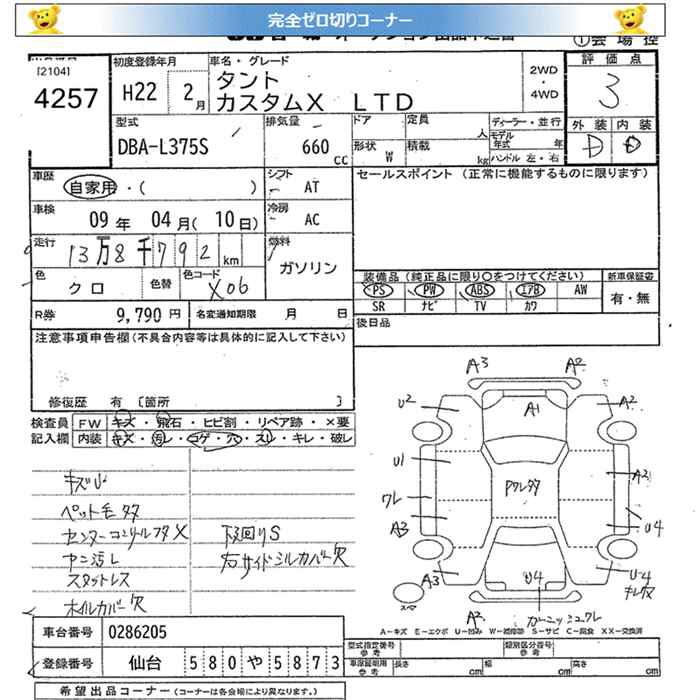 完全ゼロ切りコーナー
①会場控
[2104]
4257
初度登録年月
H22 2月
車名・グレード
タント
カスタムX LTD
2WD
・
4WD
評価点
3
外装 内装
D D
型式
DBA-L375S
排気量
660 CC
ドア
形状 W
定員 人
積載 kg
ディーラー・並行
モデル年式 年
ハンドル 左・右
車歴
自家用・( )
シフト
AT
セールスポイント (正常に機能するものに限ります)
車検
09年 04月(10日)
冷房
AC
走行
13万8千792km
燃料
ガソリン
色
クロ
色替
色コード
X06
装備品(純正品に限り○をつけてください)
PS PW ABS エアB AW
SR ナビ TV カワ
新車保証書
有・無
R券 9,790円
名変通知期限 月 日
後日品
注意事項申告欄(不具合内容等は具体的に記入して下さい)
修復歴 有 [箇所 ]
検査員記入欄
FW キズ・飛石・ヒビ割・リペア跡・×要
内装 キズ・汚レ・コゲ・穴・スレ・キレ・破レ
キズU
ペット毛タタ
センターコンソールフタX
ヤニ汚レ
スタットレス
ホイルカバー欠
下回りS
右サイドシルカバー欠
A3 A2
U2 A1 A2
U1 A2
Pワレタタ
ワレ
A3 U4
A3 U4 U-4
キレタX
A2 ガーニッシュワレ
A-キズ E-エクボ U-凹み W-補修跡 S-サビ C-腐食 XX-交換済
車台番号 0286205
登録番号 仙台 580 や 5873
型式指定番号
参考
類別区分番号
参考
車庫証明用
参考
長さ cm 幅 cm 高さ cm
希望出品コーナー(コーナーは各会場により異なります。)